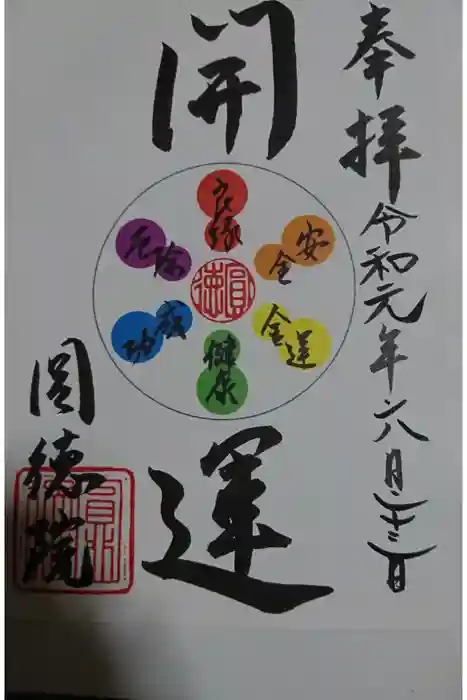 奉拝 令和元年六月二十三日
開運
良縁
安全
金運
健康
成功
厄除
圓徳
圓徳院